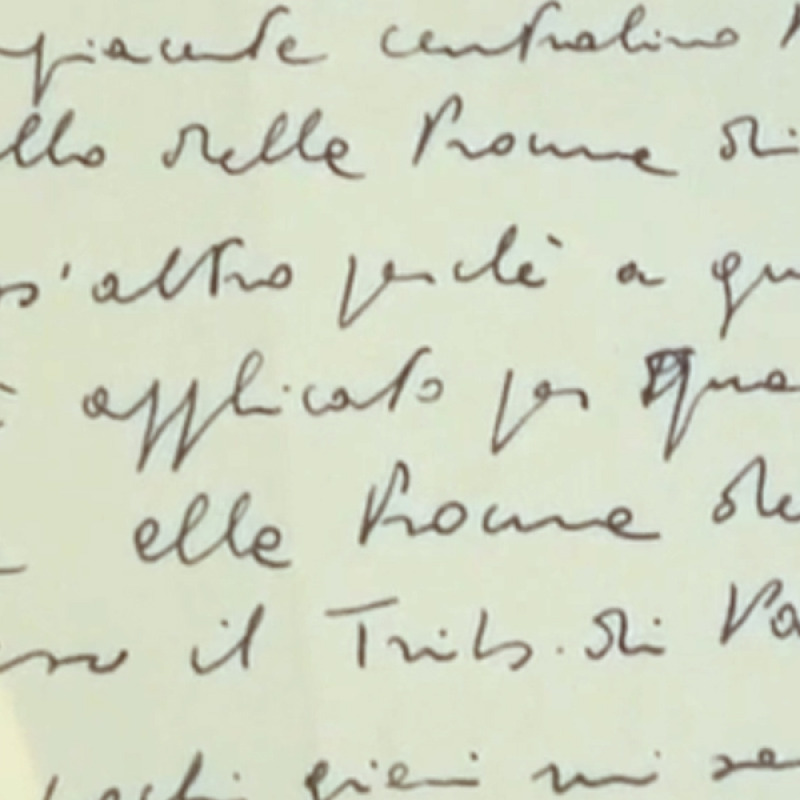 centralino
llo delle Procure di
s'altro perché a qu
è applicato per qua
alla Procura de
il Trib. di Pa
giorni mi se